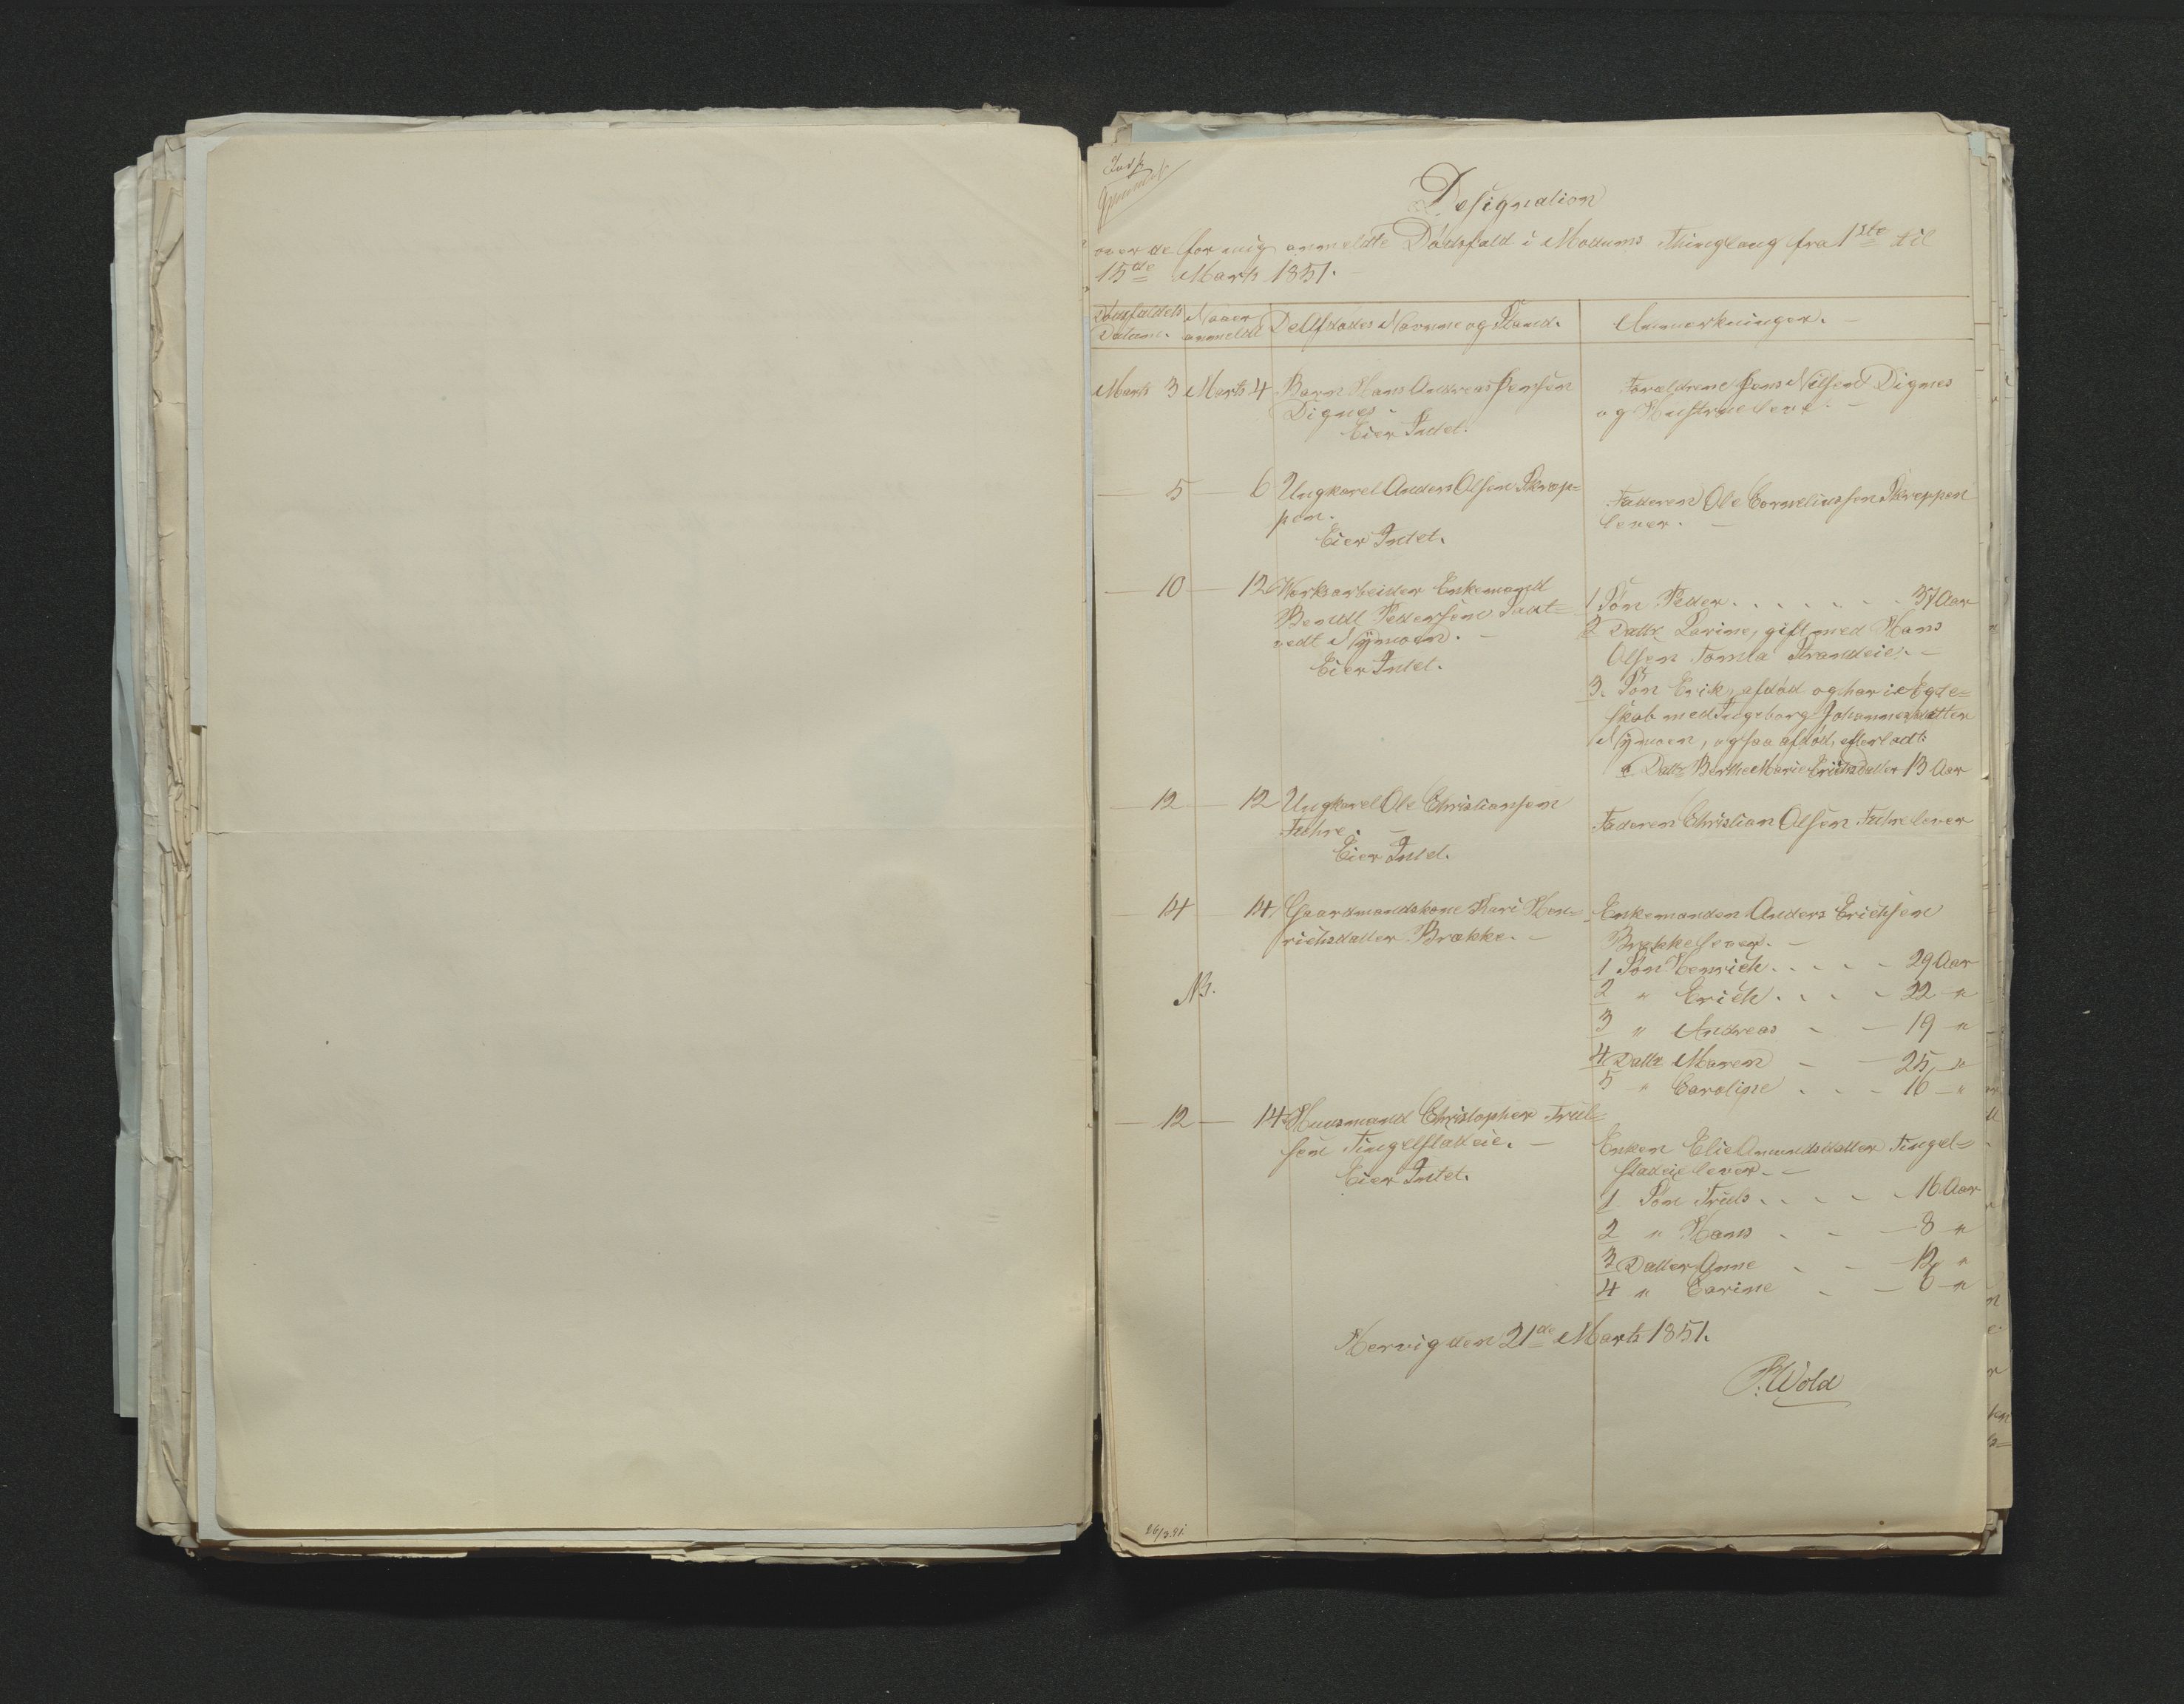 Indf
Designation
over de for mig anmeldte Dödsfald i Modums Thinglaug fra 1ste til
15de Marts 1851.
Dödsfaldets Datum.
Naar anmeldt
De Afdödes Navne og Stand.
Anmærkninger.
Marts 3 Marts 4 Barn Hans Andreas Jensen
Dignes.
Eier Intet.
Forældrene Jens Nilsen Dignes
og Hustrue leve.
— 5 — 6 Ungkarl Anders Olsen Skrep=
pen.
Eier Intet.
Faderen Ole Corneliussen Skreppen
lever.
— 10 — 12 Værksarbeider Enkemand
Bendt Pedersen Saat=
vedt Nymoen.
Eier Intet.
1 Sön Peder . . . . . 37 Aar
2 Dattr Karine, gift med Hans
Olsen Tomta Strandeie.
3. Sön Erik, afdöd og har i Egte=
skab med Ingeborg Johannesdatter
Nymoen, ogsaa afdöd, efterladt:
a Dattr Berthe Marie Erichsdatter 13 Aar
— 12 — 12 Ungkarl Ole Christiansen
Fuhre.
Eier Intet.
Faderen Christian Olsen Fuhre lever
— 14 — 14 Gaardmandskone Kari Hen=
richsdatter Brække.
NB.
Enkemanden Anders Erichsen
Brække lever.
1 Sön Henrich . . . . 29 Aar
2 " Erich . . . 22 "
3 " Andreas . — 19 "
4 Dattr Maren — 25 "
5 " Caroline . . 16 "
— 12 — 14 Huusmand Christopher Trul=
sen Tingelstadeie.
Eier Intet.
Enken Elie Amundsdatter Tingel=
stadeie lever.
1 Sön Truls . . . . 16 Aar
2 " Hans . . — 8 "
3 Datter Anne . . 12 "
4 " Carine . — 6 "
Hervig den 21de Marts 1851.
P. Wold
26/3.51.